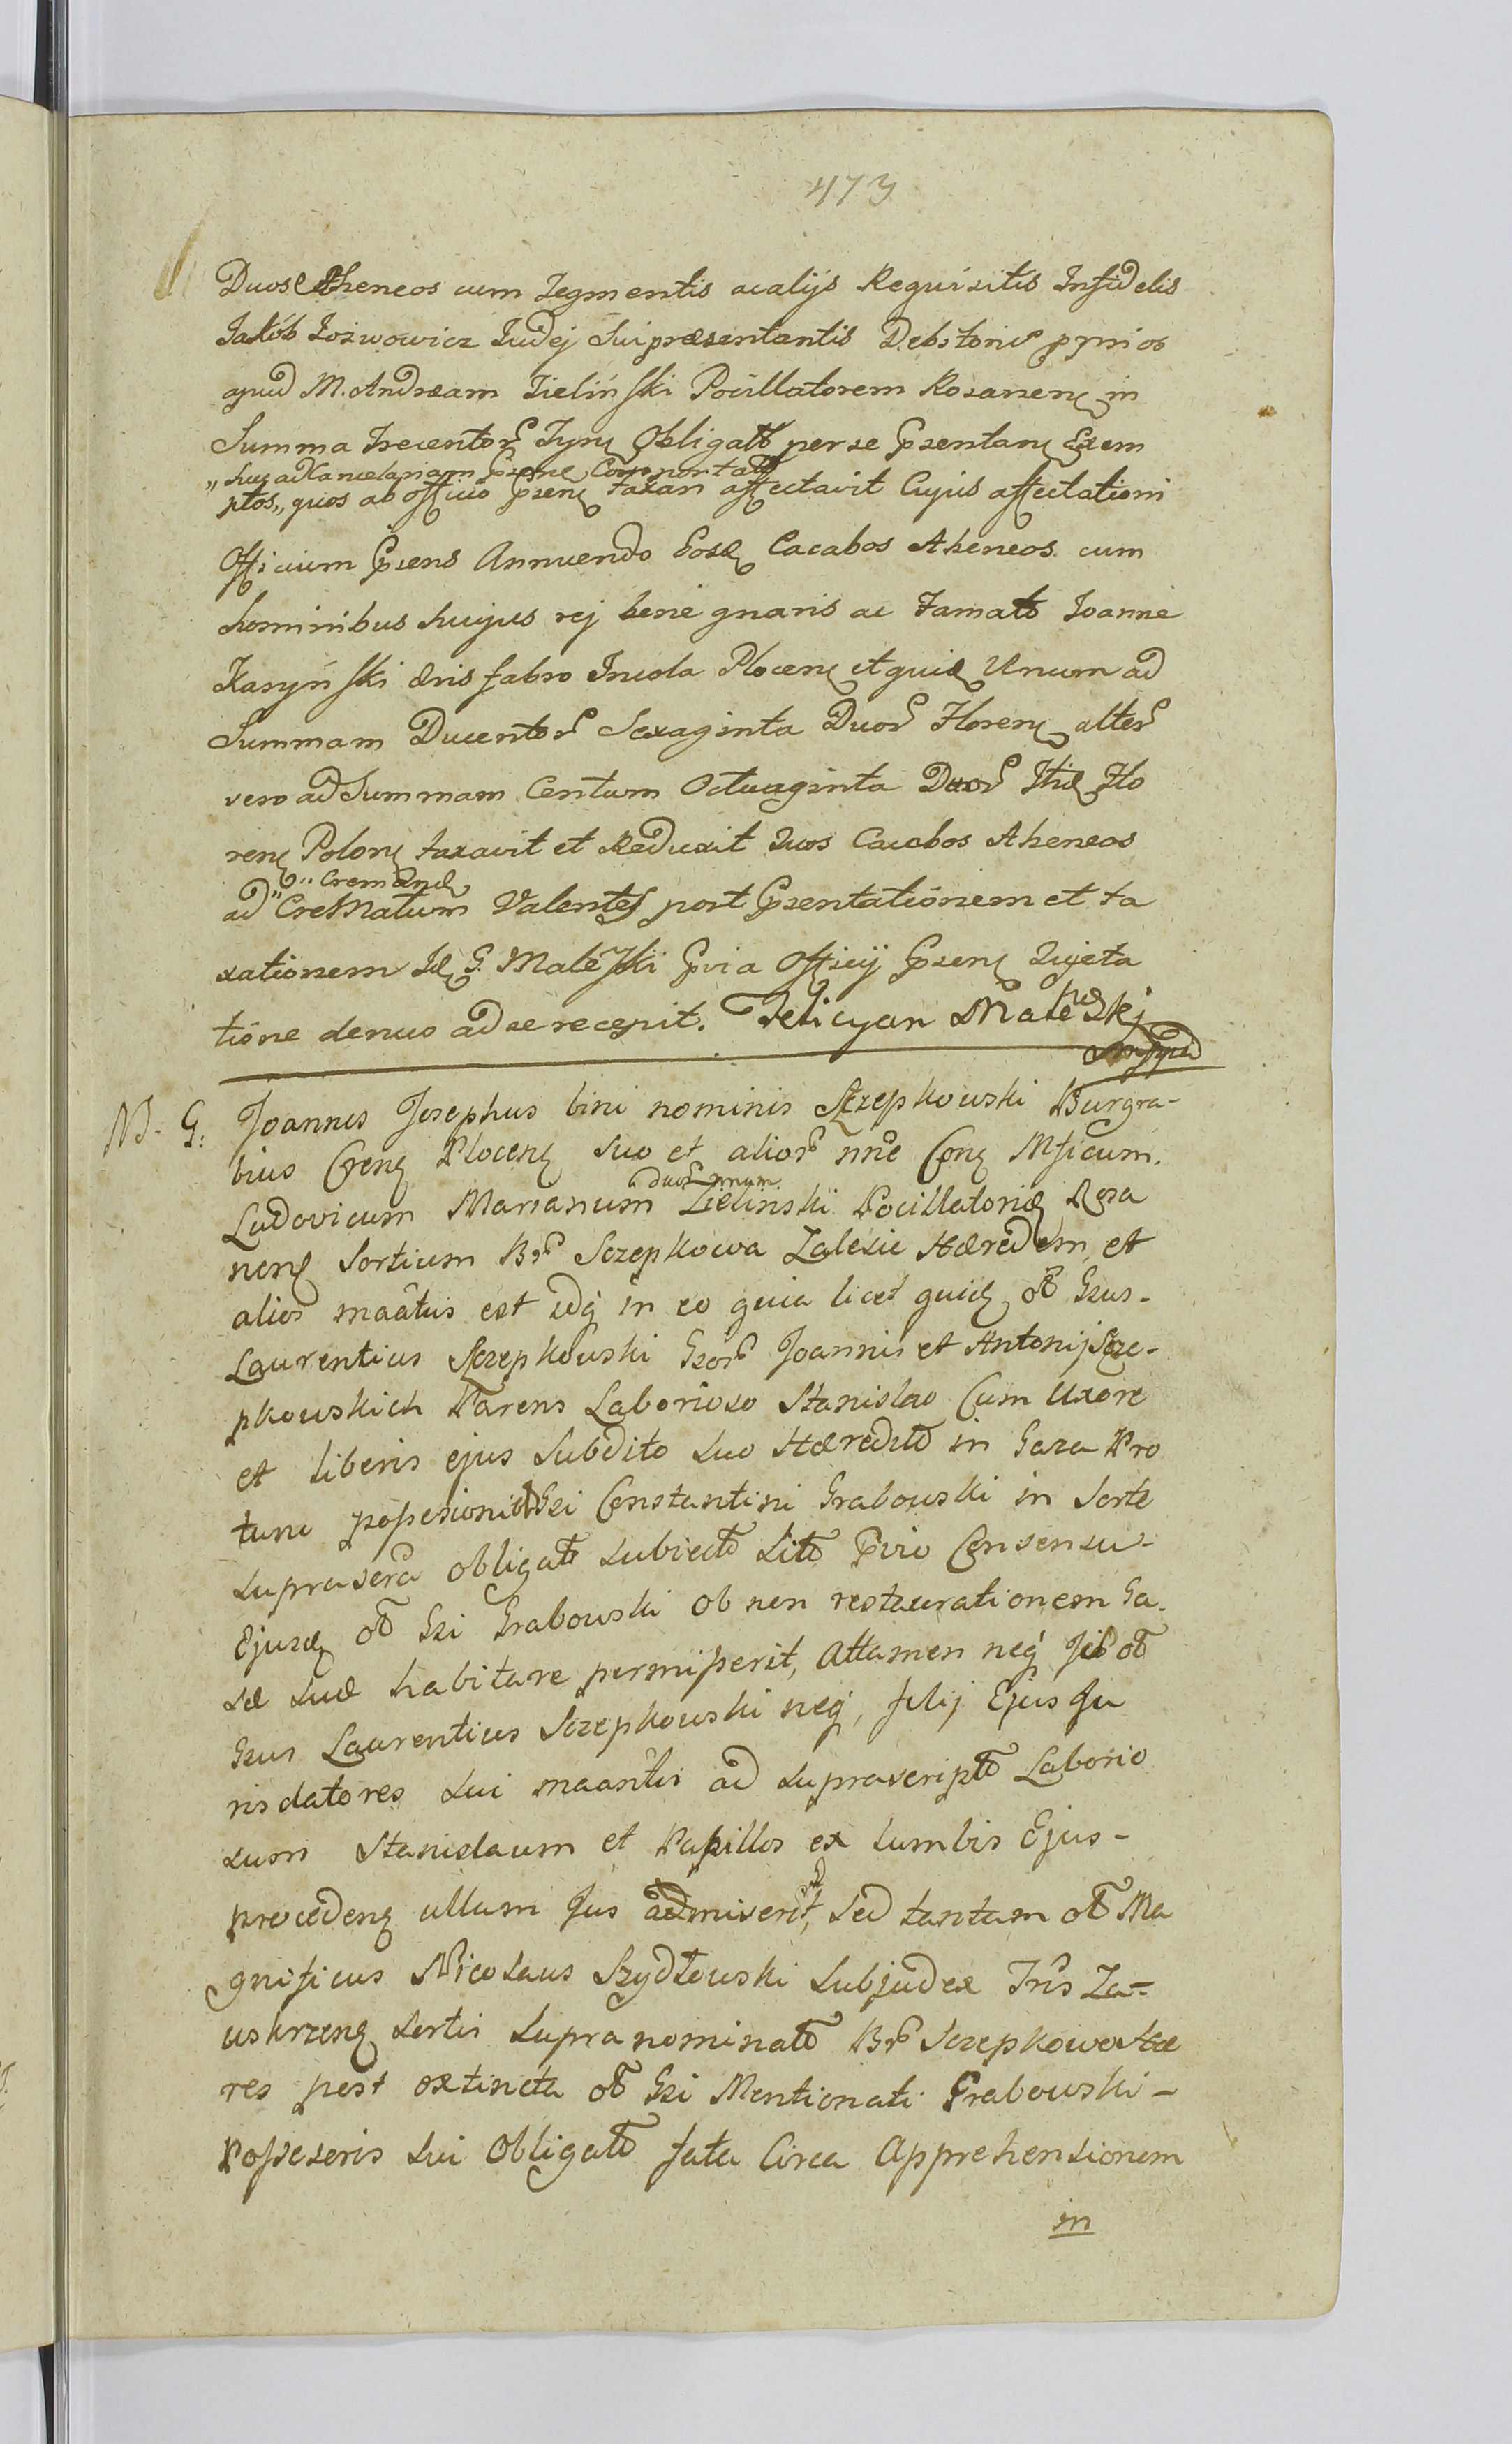 473
Duos Aheneos cum Tegmentis acalijs Requisitis Infidelis
Jakób Jozwowicz Judej Sui præsentantis
apud M. Andream Zieliński Pocillatorem Rozanenς in
Summa Trecentor Tynς Obligatt per se Psentanς Exem
„huc ad Cancelariam Psentς Comportatt
ptos„ quos ab officio Psenς taxari affectavit Cujus affectationi
Officium Psens Annuendo Eosdς Cacabos Aheneos cum
hominibus hujus rej bene gnaris ac Famato Joanne
Karyński æris fabro Incola Plocenς et quidς Unum ad
Summam Ducentor Sexaginta Duor Florenς alter
vero ad Summam Centum Octuaginta Duor Flo
renς Polonς taxavit et Reduxit Quos Cacabos Aheneos
„Cremandς
ad „Crematum Valentes post Psentationem et ta
xationem Idς G. Maleski Pvia Officij Psenς Quieta
tione denuo ad se recepit. Felicyan Maleski
mppd
M. G. Joannes Josephus bini nominis Sczepkowski Burgra-
bius Crenς Plocenς suo et alior nne Conς Mficum.
duor nnum
Ludovicum Marianum Zielinski Pocillatoridς Roza
nenς Sortium Br Sczepkowa Zalesie Hæredem et
alios maâtus est idq in eo quia licet quidς ott Gsus-
Laurentius Sczepkowski Gsor Joannis et Antonij Szcze-
pkowskich Parens Laborioso Stanislao Cum Uxore
et liberis ejus Subdito suo Hæredito in Gaza Pro
tunc possesionis Gsi Constantini Grabowski in Sorte
suprascra obligatt subiectt sitt Pvio Consensu-
Ejusdς ott Gsi Grabowski ob non restaurationem Ga.
sæ suæ habitare permisserit, Attamen neq ott
Gsus Laurentius Sczepkowski neq, filij Ejus Ju
ris datores sui maantis ad suprascriptt Laborio
sum Stanislaum et Pupillos ex lumbis Ejus-
procedenς ullum Jus admiserit, sed tantum ott Ma
gnificus Nicolaus Szydłowski Subjudex Tris Za-
uskrzenς sortis supra nominatt Br Sczepkowo Hæ
res post extincta ott Gsi Mentionati Grabowski-
Possesoris sui Obligatt fata Circa Apprehensionem
in